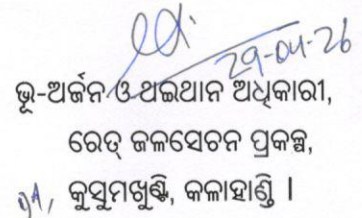 29-04-26
ଭୂ-ଅର୍ଜନ ଓ ଥଇଥାନ ଅଧିକାରୀ,
ରେତ୍ ଜଳସେଚନ ପ୍ରକଳ୍ପ,
କୁସୁମଖୁଣ୍ଟି, କଳାହାଣ୍ଡି ।